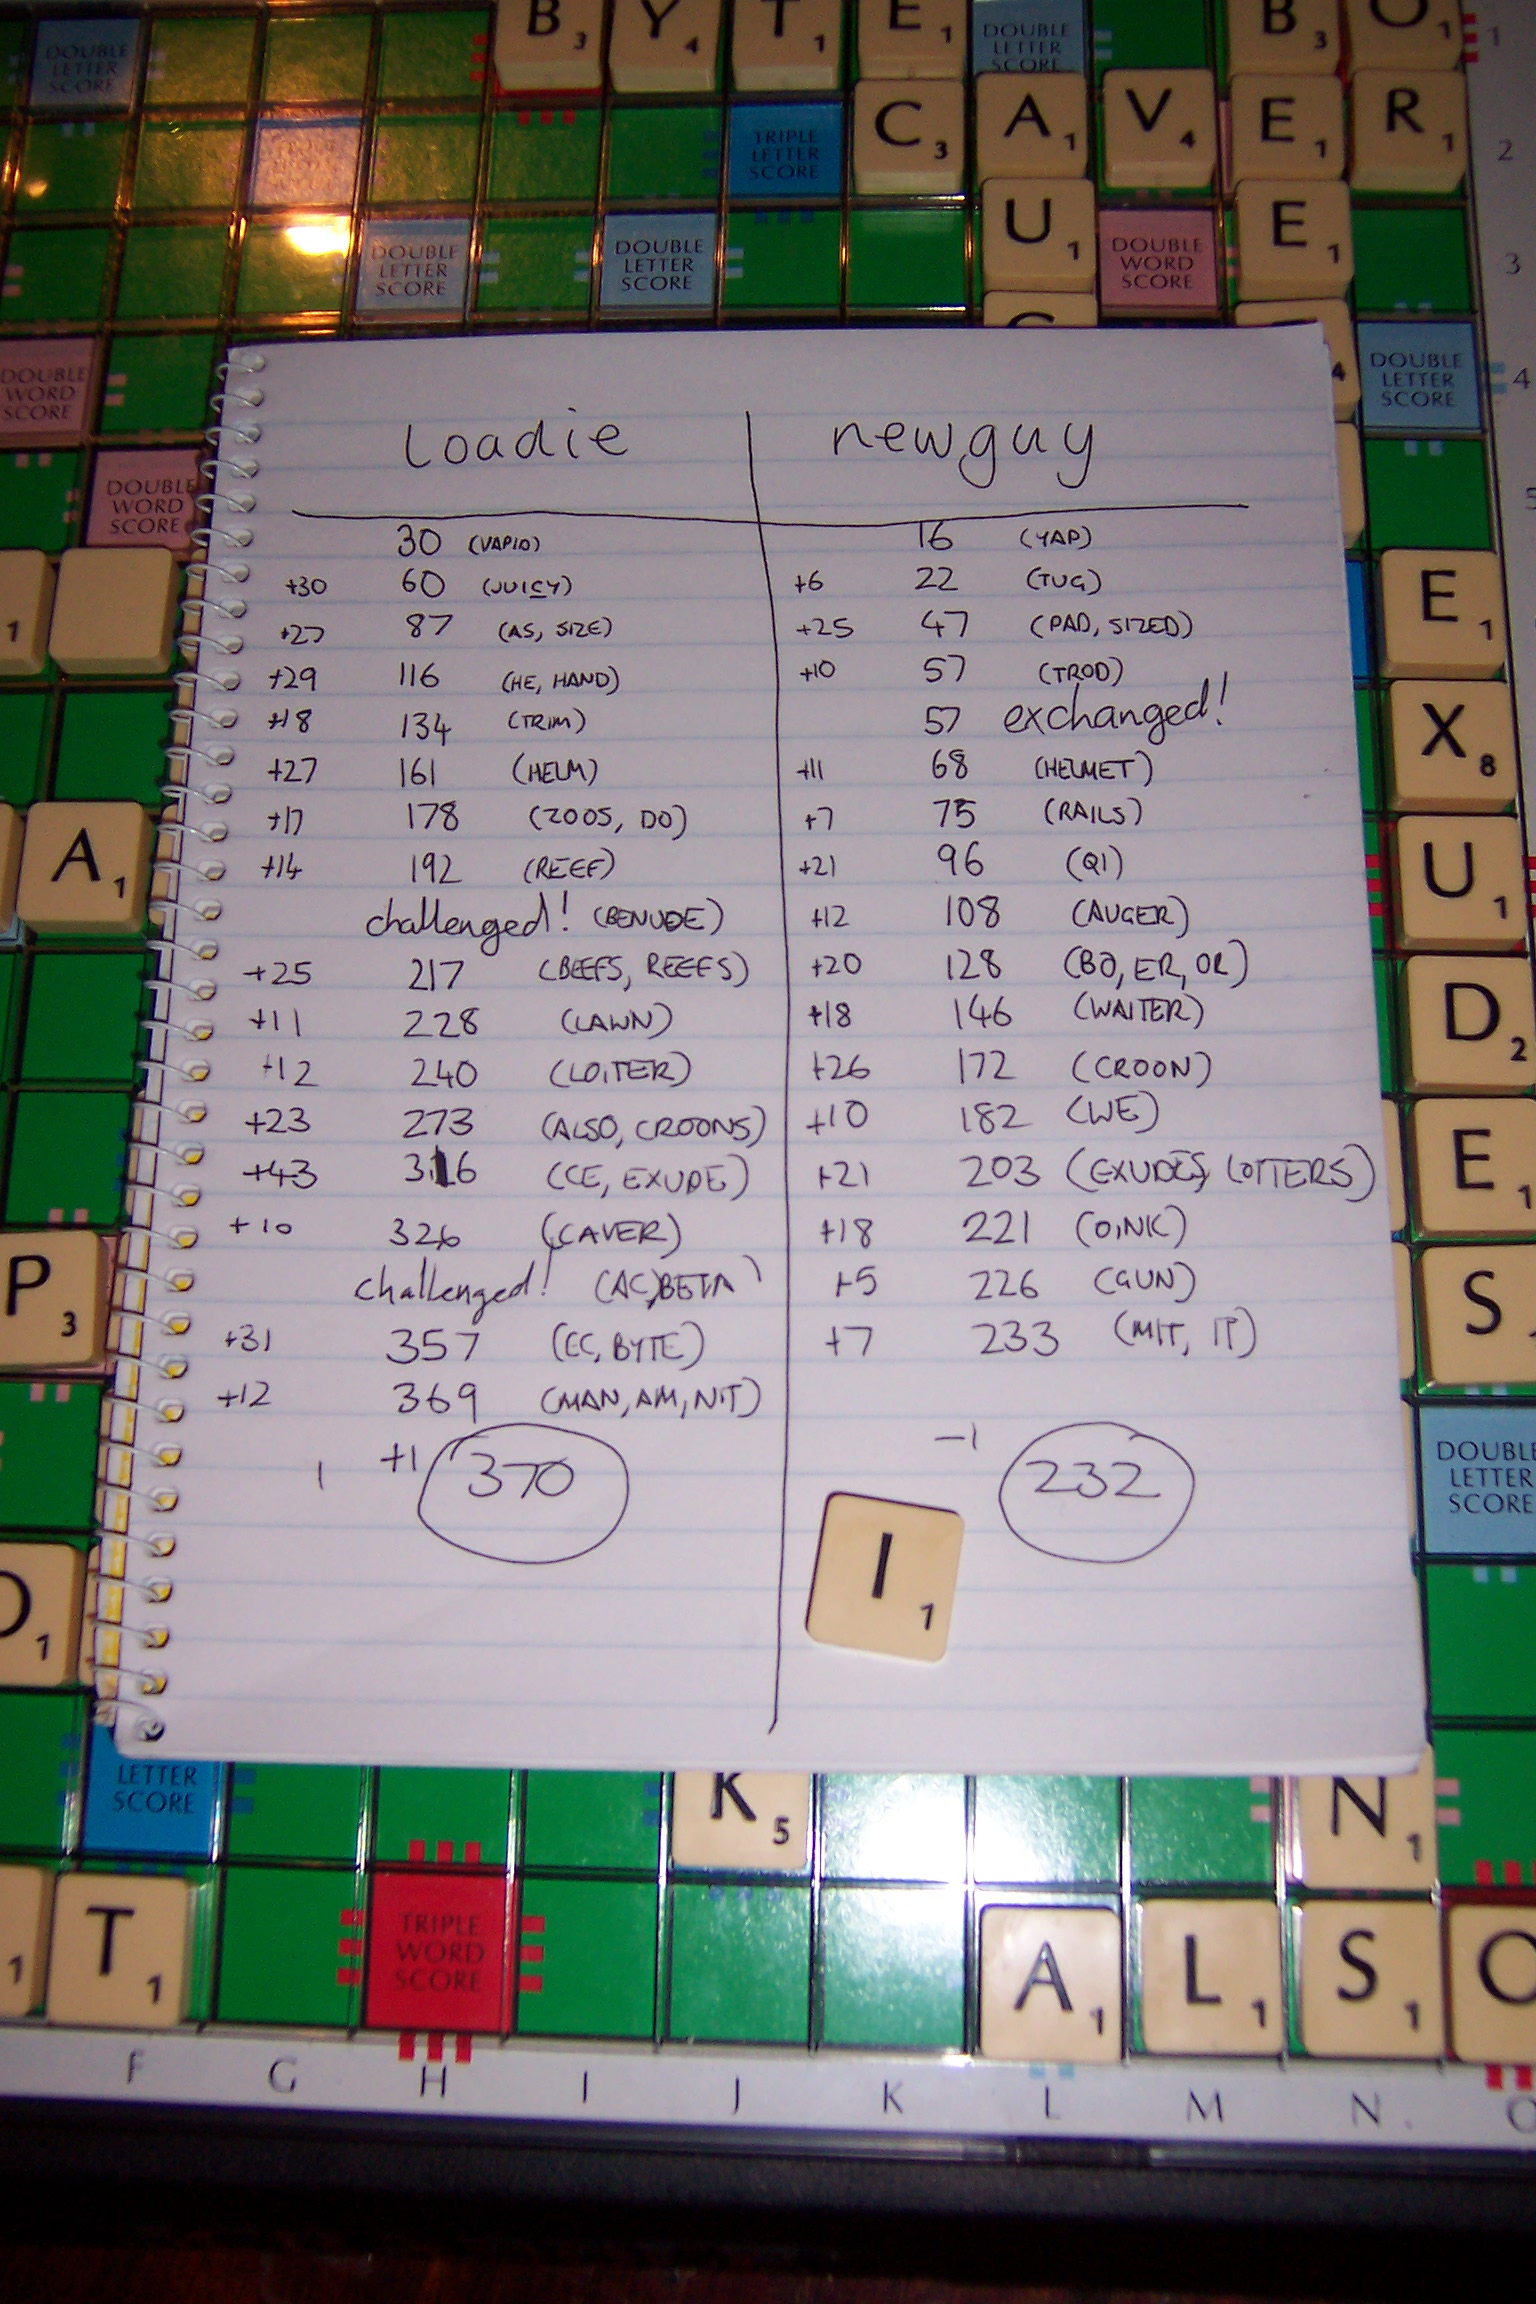 DOUBLE LETTER SCORE
B3 Y4 T1 E1
DOUBLE LETTER SCORE
B3 O1
1
TRIPLE LETTER SCORE
C3 A1 V4 E1 R1
2
DOUBLE LETTER SCORE
DOUBLE LETTER SCORE
U1
DOUBLE WORD SCORE
E1
3
DOUBLE WORD SCORE
4
DOUBLE LETTER SCORE
4
DOUBLE WORD SCORE
5
Loadie newguy
30 (VAPID) 16 (YAP)
+30 60 (JUICY) +6 22 (TUG)
+27 87 (AS, SIZE) +25 47 (PAD, SIZED)
+29 116 (HE, HAND) +10 57 (TROD)
+18 134 (TRIM) 57 exchanged!
+27 161 (HELM) +11 68 (HELMET)
+17 178 (ZOOS, DO) +7 75 (RAILS)
+14 192 (REEF) +21 96 (QI)
challenged! (BENUDE) +12 108 (AUGER)
+25 217 (BEEFS, REEFS) +20 128 (BO, ER, OR)
+11 228 (LAWN) +18 146 (WAITER)
+12 240 (LOITER) +26 172 (CROON)
+23 273 (ALSO, CROONS) +10 182 (WE)
+43 316 (CE, EXUDE) +21 203 (EXUDES, LOITERS)
+10 326 (CAVER) +18 221 (OINK)
challenged! (AC, BETA) +5 226 (GUN)
+31 357 (EC, BYTE) +7 233 (MIT, IT)
+12 369 (MAN, AM, NIT)
1 +1 370 -1 232
I1
1
A1
P3
O1
E1
X8
U1
D2
E1
S
DOUBLE LETTER SCORE
LETTER SCORE
K5
N1
1 T1
TRIPLE WORD SCORE
A1 L1 S1 O
F G H I J K L M N O